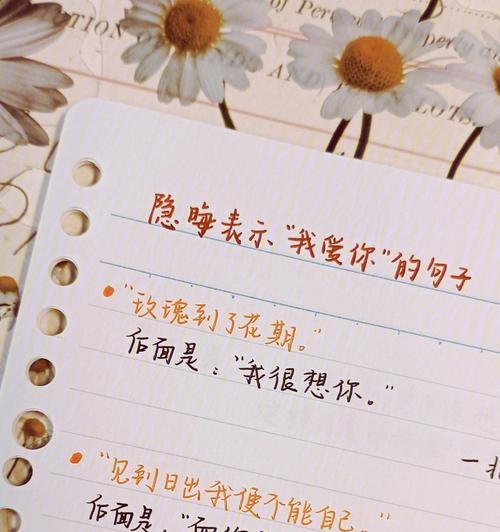 TION O
of Personal Property a
AND
LOTS.
隐晦表示“我爱你”的句子
“玫瑰到了花期。”
后面是：“我很想你。”
一北
“见到日出我便不能自己。”
后面是：“而你